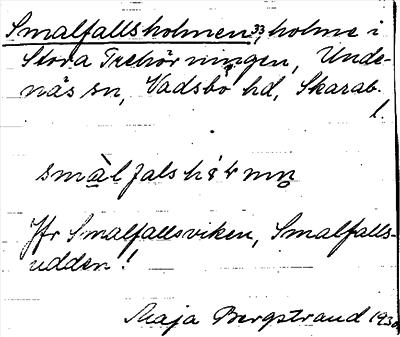 Smalfallsholmen 33, holme i
Stora Trehörningen, Unde-
näs sn, Vadsbo hd, Skarab.
l.
smàlfals
Jfr Smalfallsviken, Smalfalls-
udden!
Maja Bergstrand 1930